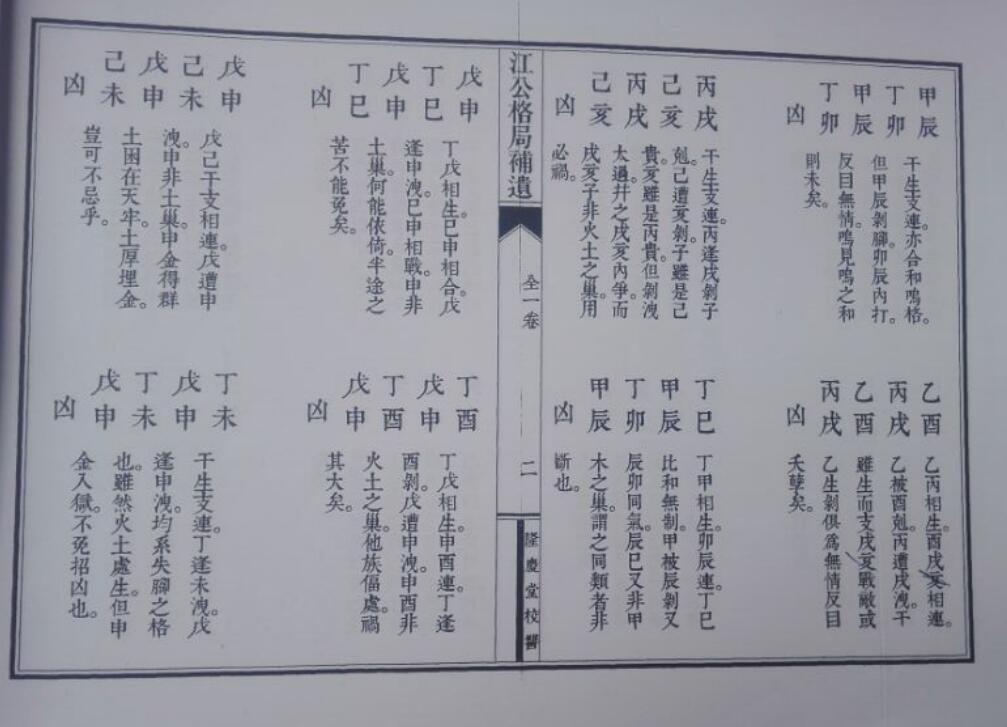 甲辰
丁卯
甲辰
丁卯
凶
干生支連。亦合和鳴格。
但甲辰剝腳。卯辰內打。
反目無情。鳴見鳴之和
則未矣。
乙酉
丙戌
乙酉
丙戌
凶
乙丙相生。酉戌亥相連。
乙被酉剋。丙遭戌洩。干
雖生而支戌亥戰敵或
乙生剝俱爲無情反目
夭孽矣。
丙戌
己亥
丙戌
己亥
凶
干生支連。丙逢戌剝子
剋。己遭亥剝。子雖是己
貴。亥雖是丙貴。但剝洩
太過。幷之戌亥內爭。而
戌亥子非火土之巢。用
必禍。
丁巳
甲辰
丁卯
甲辰
凶
丁甲相生。卯辰連。丁巳
比和無制。甲被辰剝又
辰卯同氣。辰巳又非甲
木之巢。謂之同類者非
斷也。
江公格局補遺
全一卷
二
隆慶堂校
戊申
丁巳
戊申
丁巳
凶
丁戊相生。巳申相合。戊
逢申洩。巳申相戰。申非
土巢。何能依倚。半途之
苦不能免矣。
丁酉
戊申
丁酉
戊申
凶
丁戊相生。申酉連。丁逢
酉剝。戊遭申洩。申酉非
火土之巢。他族偪處。禍
其大矣。
戊申
己未
戊申
己未
凶
戊己干支相連。戊遭申
洩。申非土巢。申金得群
土困在天牢。土厚埋金。
豈可不忌乎。
丁未
戊申
丁未
戊申
凶
干生支連。丁逢未洩。戊
逢申洩。均系失腳之格
也。雖然火土處生。但申
金入獄。不免招凶也。